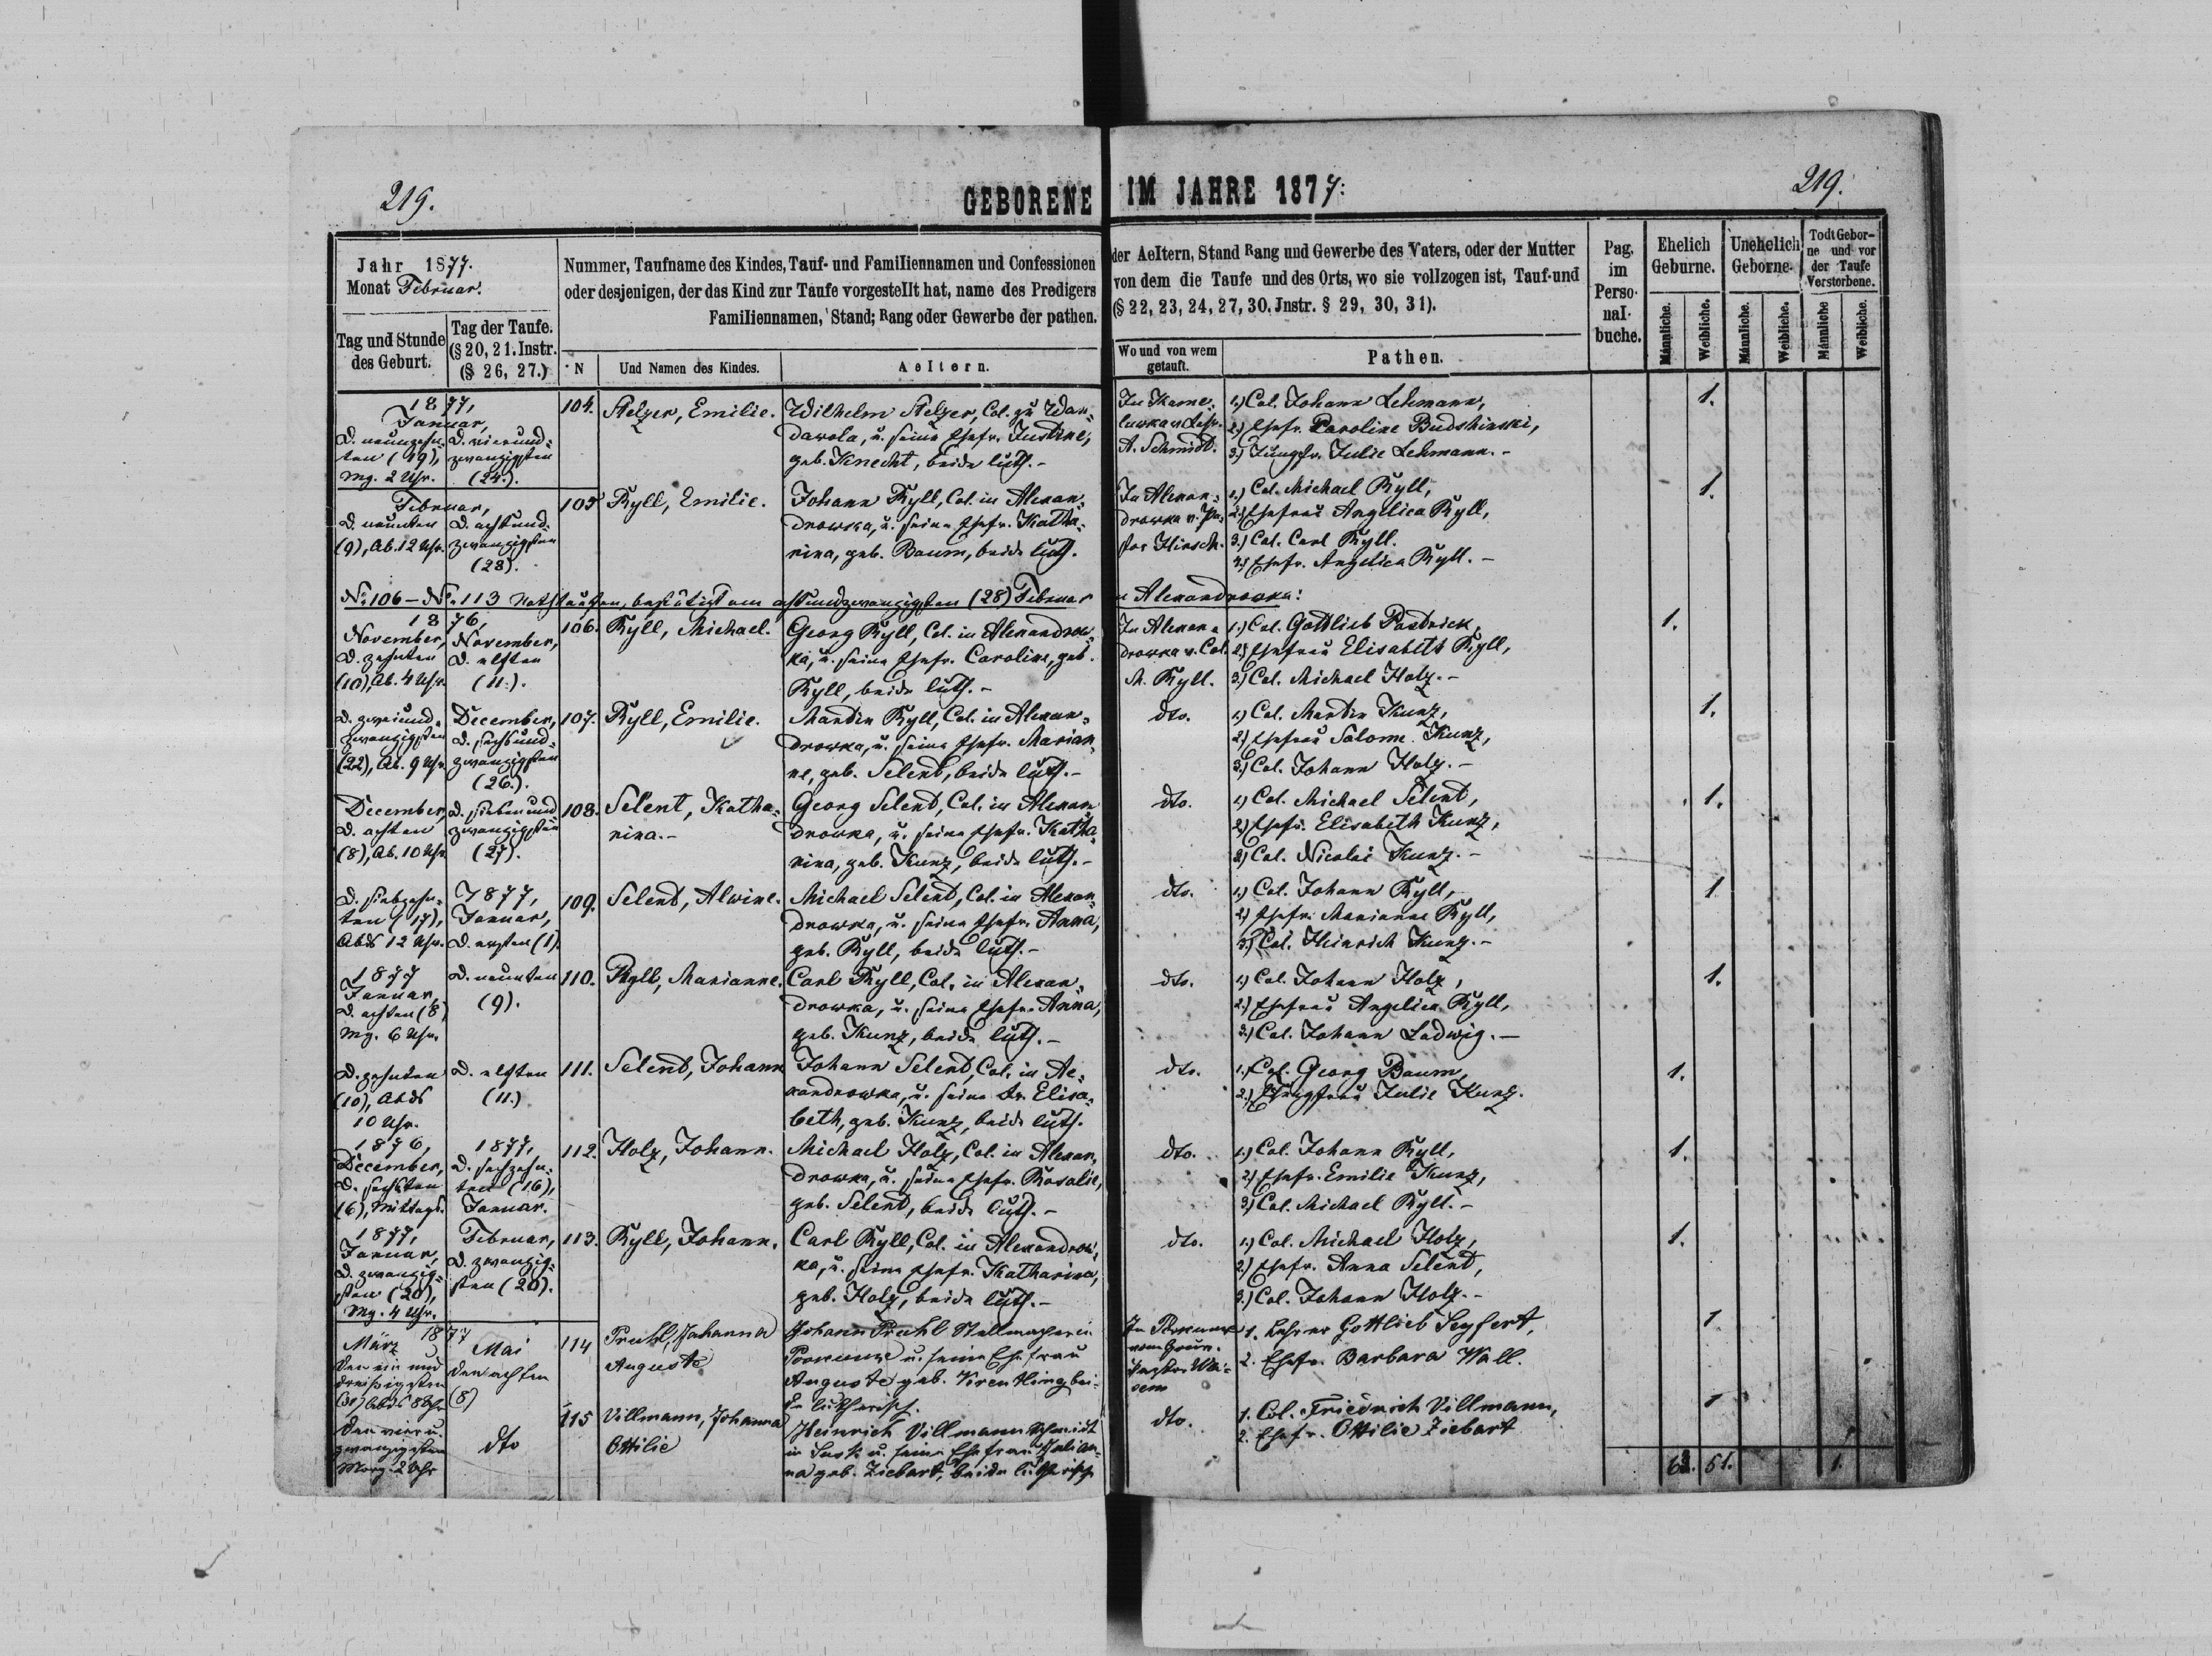 219.
GEBORENE IM JAHRE 1877:
219.
Jahr 1877.
Monat Februar.
Tag und Stunde
des Geburt.
Tag der Taufe.
(§ 20, 21. Instr.
(§ 26, 27.)
Nummer, Taufname des Kindes, Tauf- und Familiennamen und Confessionen
oder desjenigen, der das Kind zur Taufe vorgestellt hat, name des Predigers
Familiennamen, Stand; Rang oder Gewerbe der pathen.
N
Und Namen des Kindes.
Aeltern.
der Aeltern, Stand Rang und Gewerbe des Vaters, oder der Mutter
von dem die Taufe und des Orts, wo sie vollzogen ist, Tauf-und
(§ 22, 23, 24, 27, 30. Jnstr. § 29, 30, 31).
Wo und von wem
getauft.
Pathen.
Pag.
im
Perso-
nal-
buche.
Ehelich
Geburne.
Unehelich
Geborne.
Todt Gebor-
ne und vor
der Taufe
Verstorbene.
Männliche.
Weibliche.
Männliche.
Weibliche.
Männliche
Weibliche.
1877,
Januar,
D. neunzehn-
ten (19),
Mg. 2 Uhr.
D. vierund-
zwanzigsten
(24.).
104.
Stelzer, Emilie.
Wilhelm Stelzer, Col. zu Wan-
darola, u. seine Ehefr. Justine,
geb. Knecht, beide luth.-
A. Schmidt.
1.) Col. Johann Lehmann,
2.) Ehefr. Caroline Budshinski,
3.) Jungfr. Julie Lehmann.-
1.
Februar,
D. neunten
(9), Ab. 12 Uhr.
D. achtund-
zwanzigsten
(28).
105
Ryll, Emilie.
Johann Ryll, Col. in Alexan-
drowka, u. seine Ehefr. Katha-
rina, geb. Baum, beide luth.
In Alexan-
drowka v. Pa-
stor Hirsch.
1.) Col. Michael Ryll,
2.) Ehefrau Angelica Ryll,
3.) Col. Carl Ryll.
4.) Ehefr. Angelica Ryll.-
1.
No. 106 - No. 113 Nothtaufen, bestätigt am achtundzwanzigsten (28) Februar in Alexandrowka:
1876,
November,
D. zehnten
(10), Ab. 4 Uhr.
November,
D. elften
(11.).
106.
Ryll, Michael.
Georg Ryll, Col. in Alexandrow-
ka, u. seine Ehefr. Caroline, geb.
Ryll, beide luth.-
In Alexan-
drowka v. Col.
M. Ryll.
1.) Col. Gottlieb Pastrick,
2.) Ehefrau Elisabeth Ryll,
3.) Col. Michael Holz.-
1.
D. zweiund-
zwanzigsten
(22), Ab. 9 Uhr.
December,
D. sechsund-
zwanzigsten
(26.).
107.
Ryll, Emilie.
Martin Ryll, Col. in Alexan-
drowka, u. seine Ehefr. Marian-
ne, geb. Selent, beide luth.-
dto.
1.) Col. Martin Kunz,
2.) Ehefrau Salome Kunz,
3.) Col. Johann Holz.-
1.
December,
D. achten
(8), Ab. 10 Uhr.
D. siebenund
zwanzigsten
(27).
108.
Selent, Katha-
rina.-
Georg Selent, Col. in Alexan
drowka, u. seine Ehefr. Katha-
rina, geb. Kunz, beide luth.-
dto.
1.) Col. Michael Selent,
2.) Ehefr. Elisabeth Kunz,
3.) Col. Nicolai Kunz.-
1.
D. siebzehn-
ten (17),
Abds 12 Uhr.
1877,
Januar,
D. ersten (1).
109.
Selent, Alwine.
Michael Selent, Col. in Alexan-
drowka, u. seine Ehefr. Anna,
geb. Ryll, beide luth.-
dto.
1.) Col. Johann Ryll,
2.) Ehefr. Marianne Ryll,
3.) Col. Heinrich Kunz.-
1
1877
Januar,
D. achten (8)
Mg. 6 Uhr.
D. neunten
(9).
110.
Ryll, Marianne.
Carl Ryll, Col. in Alexan-
drowka, u. seine Ehefr. Anna,
geb. Kunz, beide luth.-
dto.
1.) Col. Johann Holz,
2.) Ehefrau Angelica Ryll,
3.) Col. Johann Ladwig.-
1.
D. zehnten
(10), Abds
10 Uhr.
D. elften
(11.)
111.
Selent, Johann
Johann Selent, Col. in Ale-
xandrowka, u. seine Fr. Elisa-
beth, geb. Kunz, beide luth.
dto.
1.) Col. Georg Baum,
2.) Jungfrau Julie Kunz.
1.
1876,
December,
D. sechsten
(6), Mittags.
1877,
D. sechzehn-
ten (16),
Januar.
112.
Holz, Johann.
Michael Holz, Col. in Alexan-
drowka, u. seine Ehefr. Rosalie,
geb. Selent, beide luth.-
dto.
1.) Col. Johann Ryll,
2.) Ehefr. Emilie Kunz,
3.) Col. Michael Ryll.-
1.
1877,
Januar,
D. zwanzig-
sten (20),
Mg. 4 Uhr.
Februar,
D. zwanzig-
sten (20).
113.
Ryll, Johann.
Carl Ryll, Col. in Alexandrow-
ka, u. seine Ehefr. Katharina,
geb. Holz, beide luth.-
dto.
1.) Col. Michael Holz,
2.) Ehefr. Anna Selent,
3.) Col. Johann Holz.-
1.
1877
März
den ein und
dreißigsten
(31) Abds 8 Uhr
Mai
den achten
(8)
114
Pruhl, Johanna
Auguste
Johann Pruhl Stellmacher in
u. seine Ehefrau
Auguste geb. bei-
de lutherisch.
1. Lehrer Gottlieb Seyfert,
2. Ehefr. Barbara Wall.
1
den vier u.
zwanzigsten
Morg. 2 Uhr
dto
115
Villmann, Johanna
Ottilie
Heinrich Villmann Schmidt
in u. seine Ehefrau Julian-
na geb. Ziebart, beide lutherisch
dto.
1. Col. Friedrich Villmann,
2. Ehefr. Ottilie Ziebart
1
63. 51. 1.